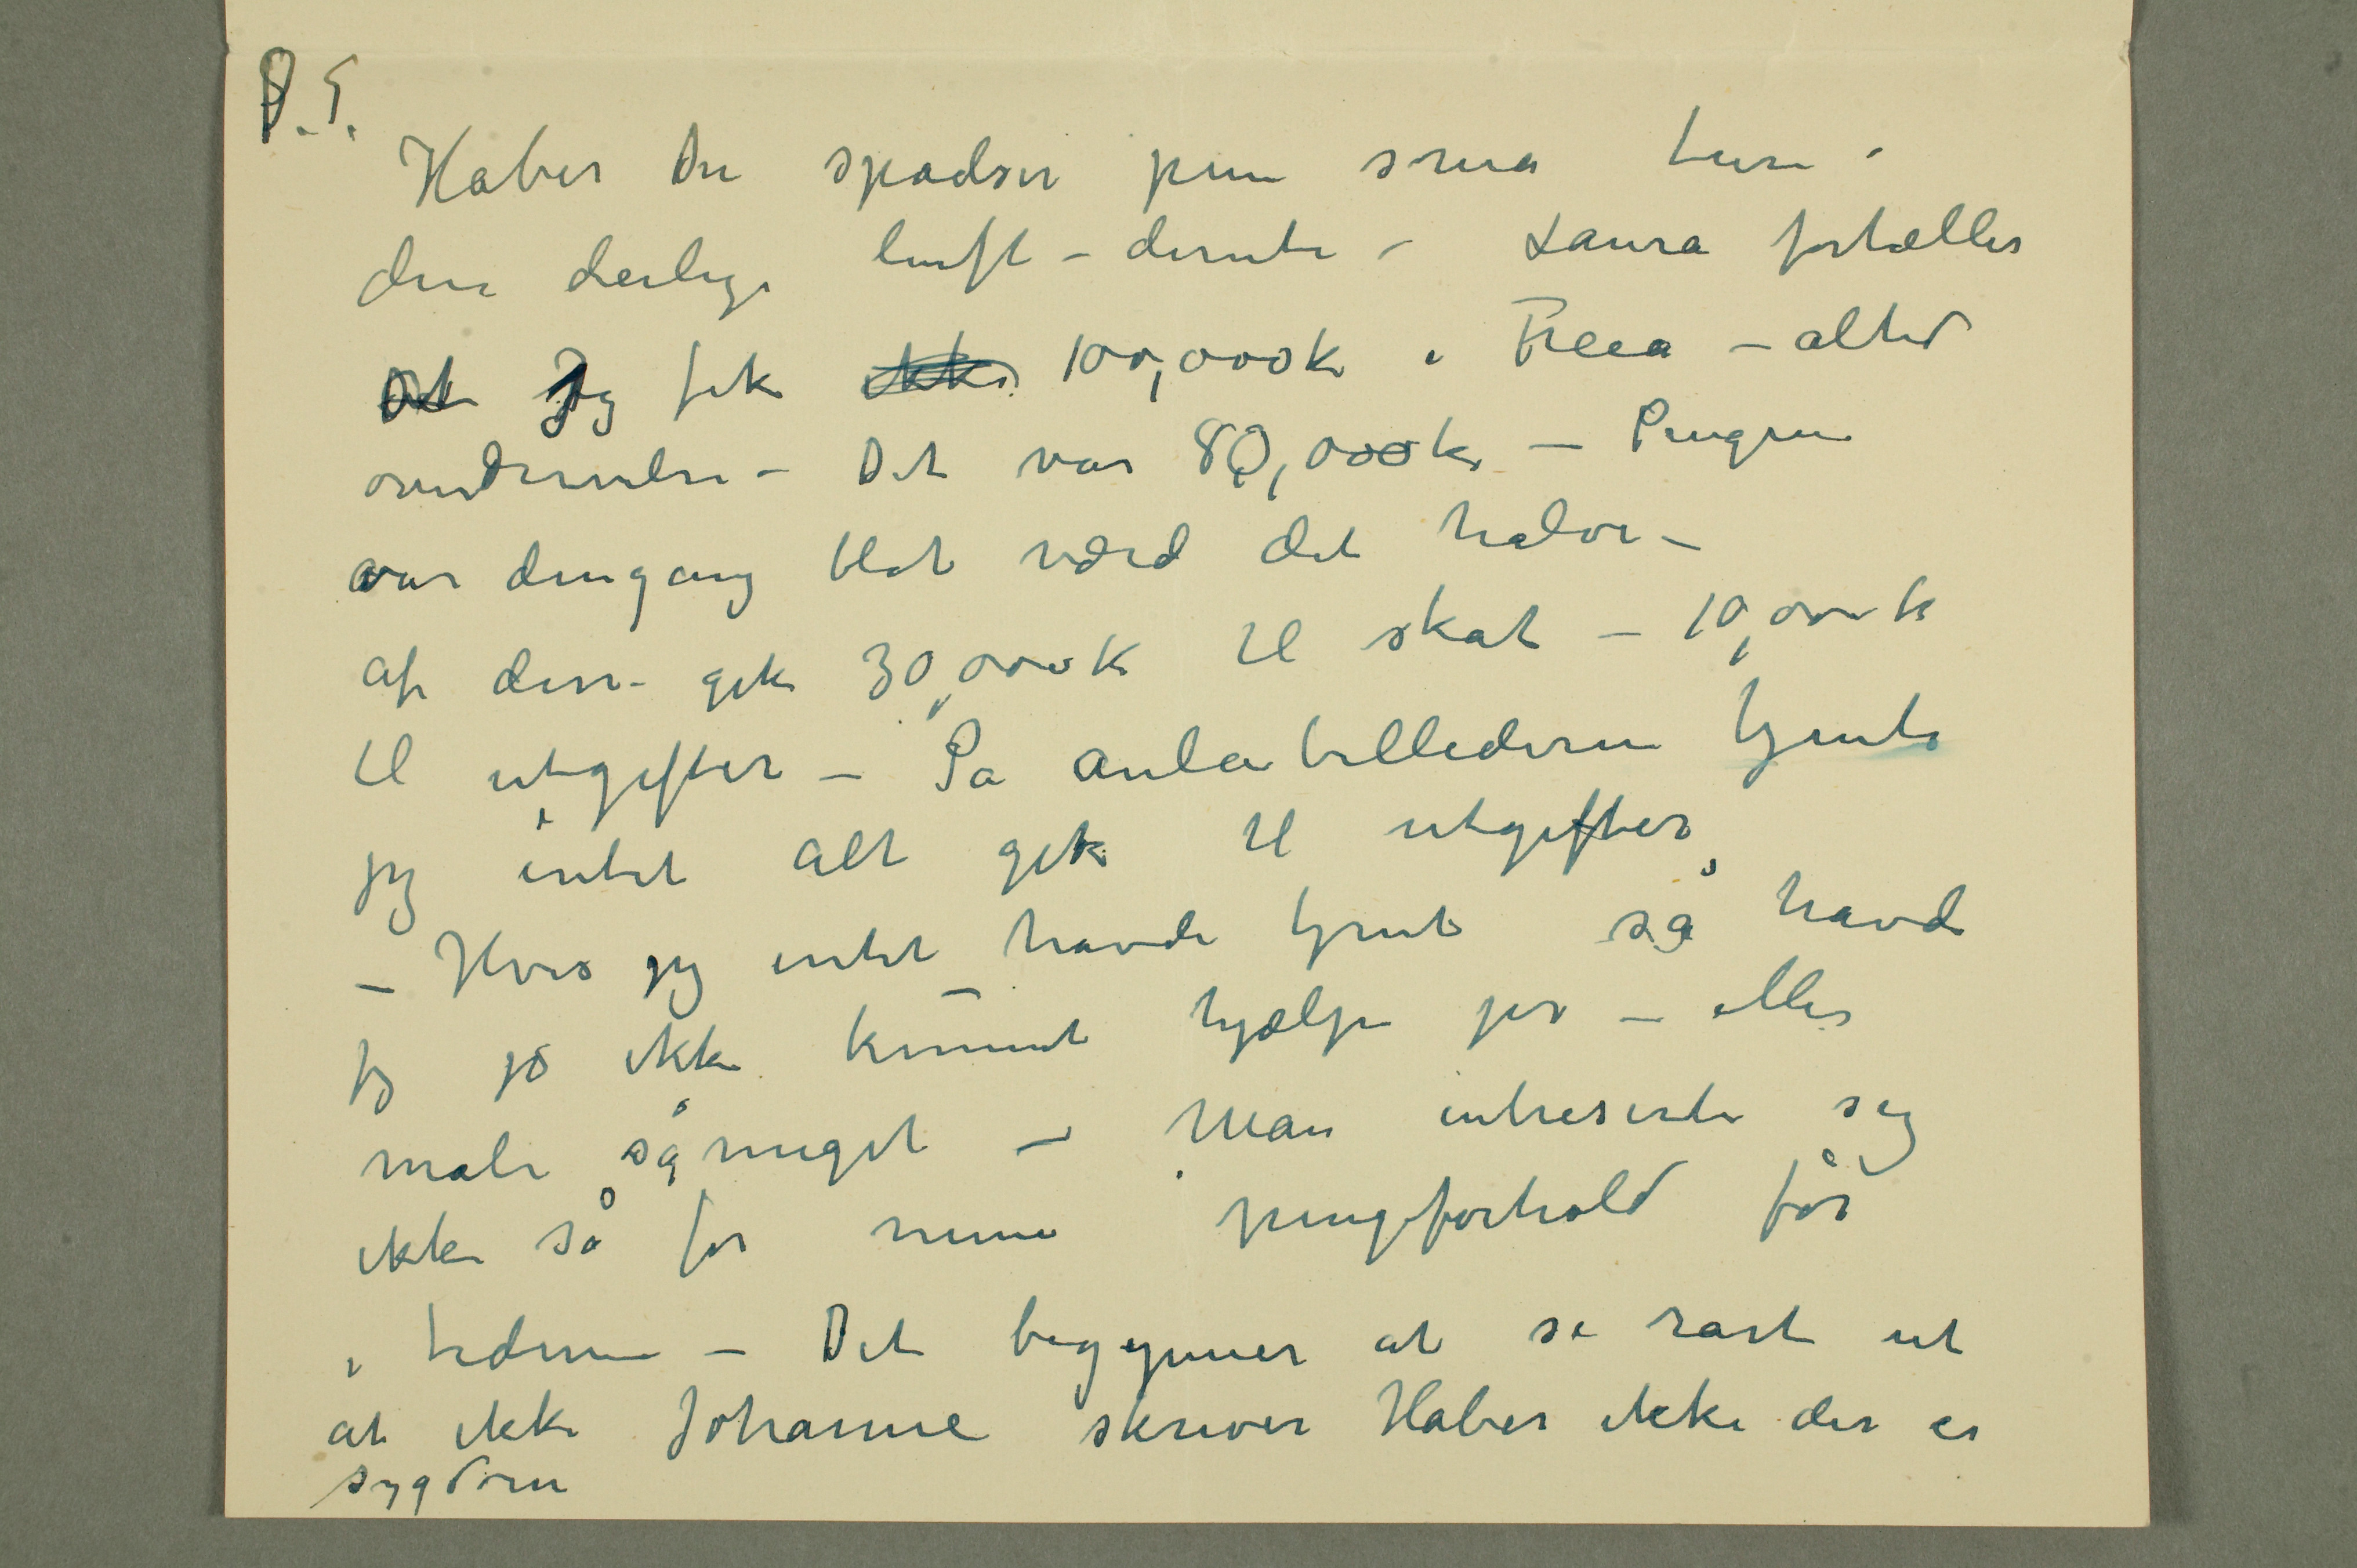 P.S.
Håber Du spadser pene små ture i
den deilige luft – derute – Laura fortæller
Det Jeg fik ikke 100,000 k i Freia – altid
overdrivelse – Det var 80,000 k – Pengene
var dengang blot værd det halve –
af disse gik 30,000 k til skat – 10,000 k
til utgifter – På aulabillederne tjente
jeg intet alt gik til utgifter
– Hvis jeg intet havde tjent så havde
jeg jo ikke kunnet hjælpe jer – eller
male så meget – Man intreserte sig
ikke så for mine pengeforhold før
i tiden – Det begynner at se rart ut
at ikke Johanne skriver Håber ikke der er
sygdom